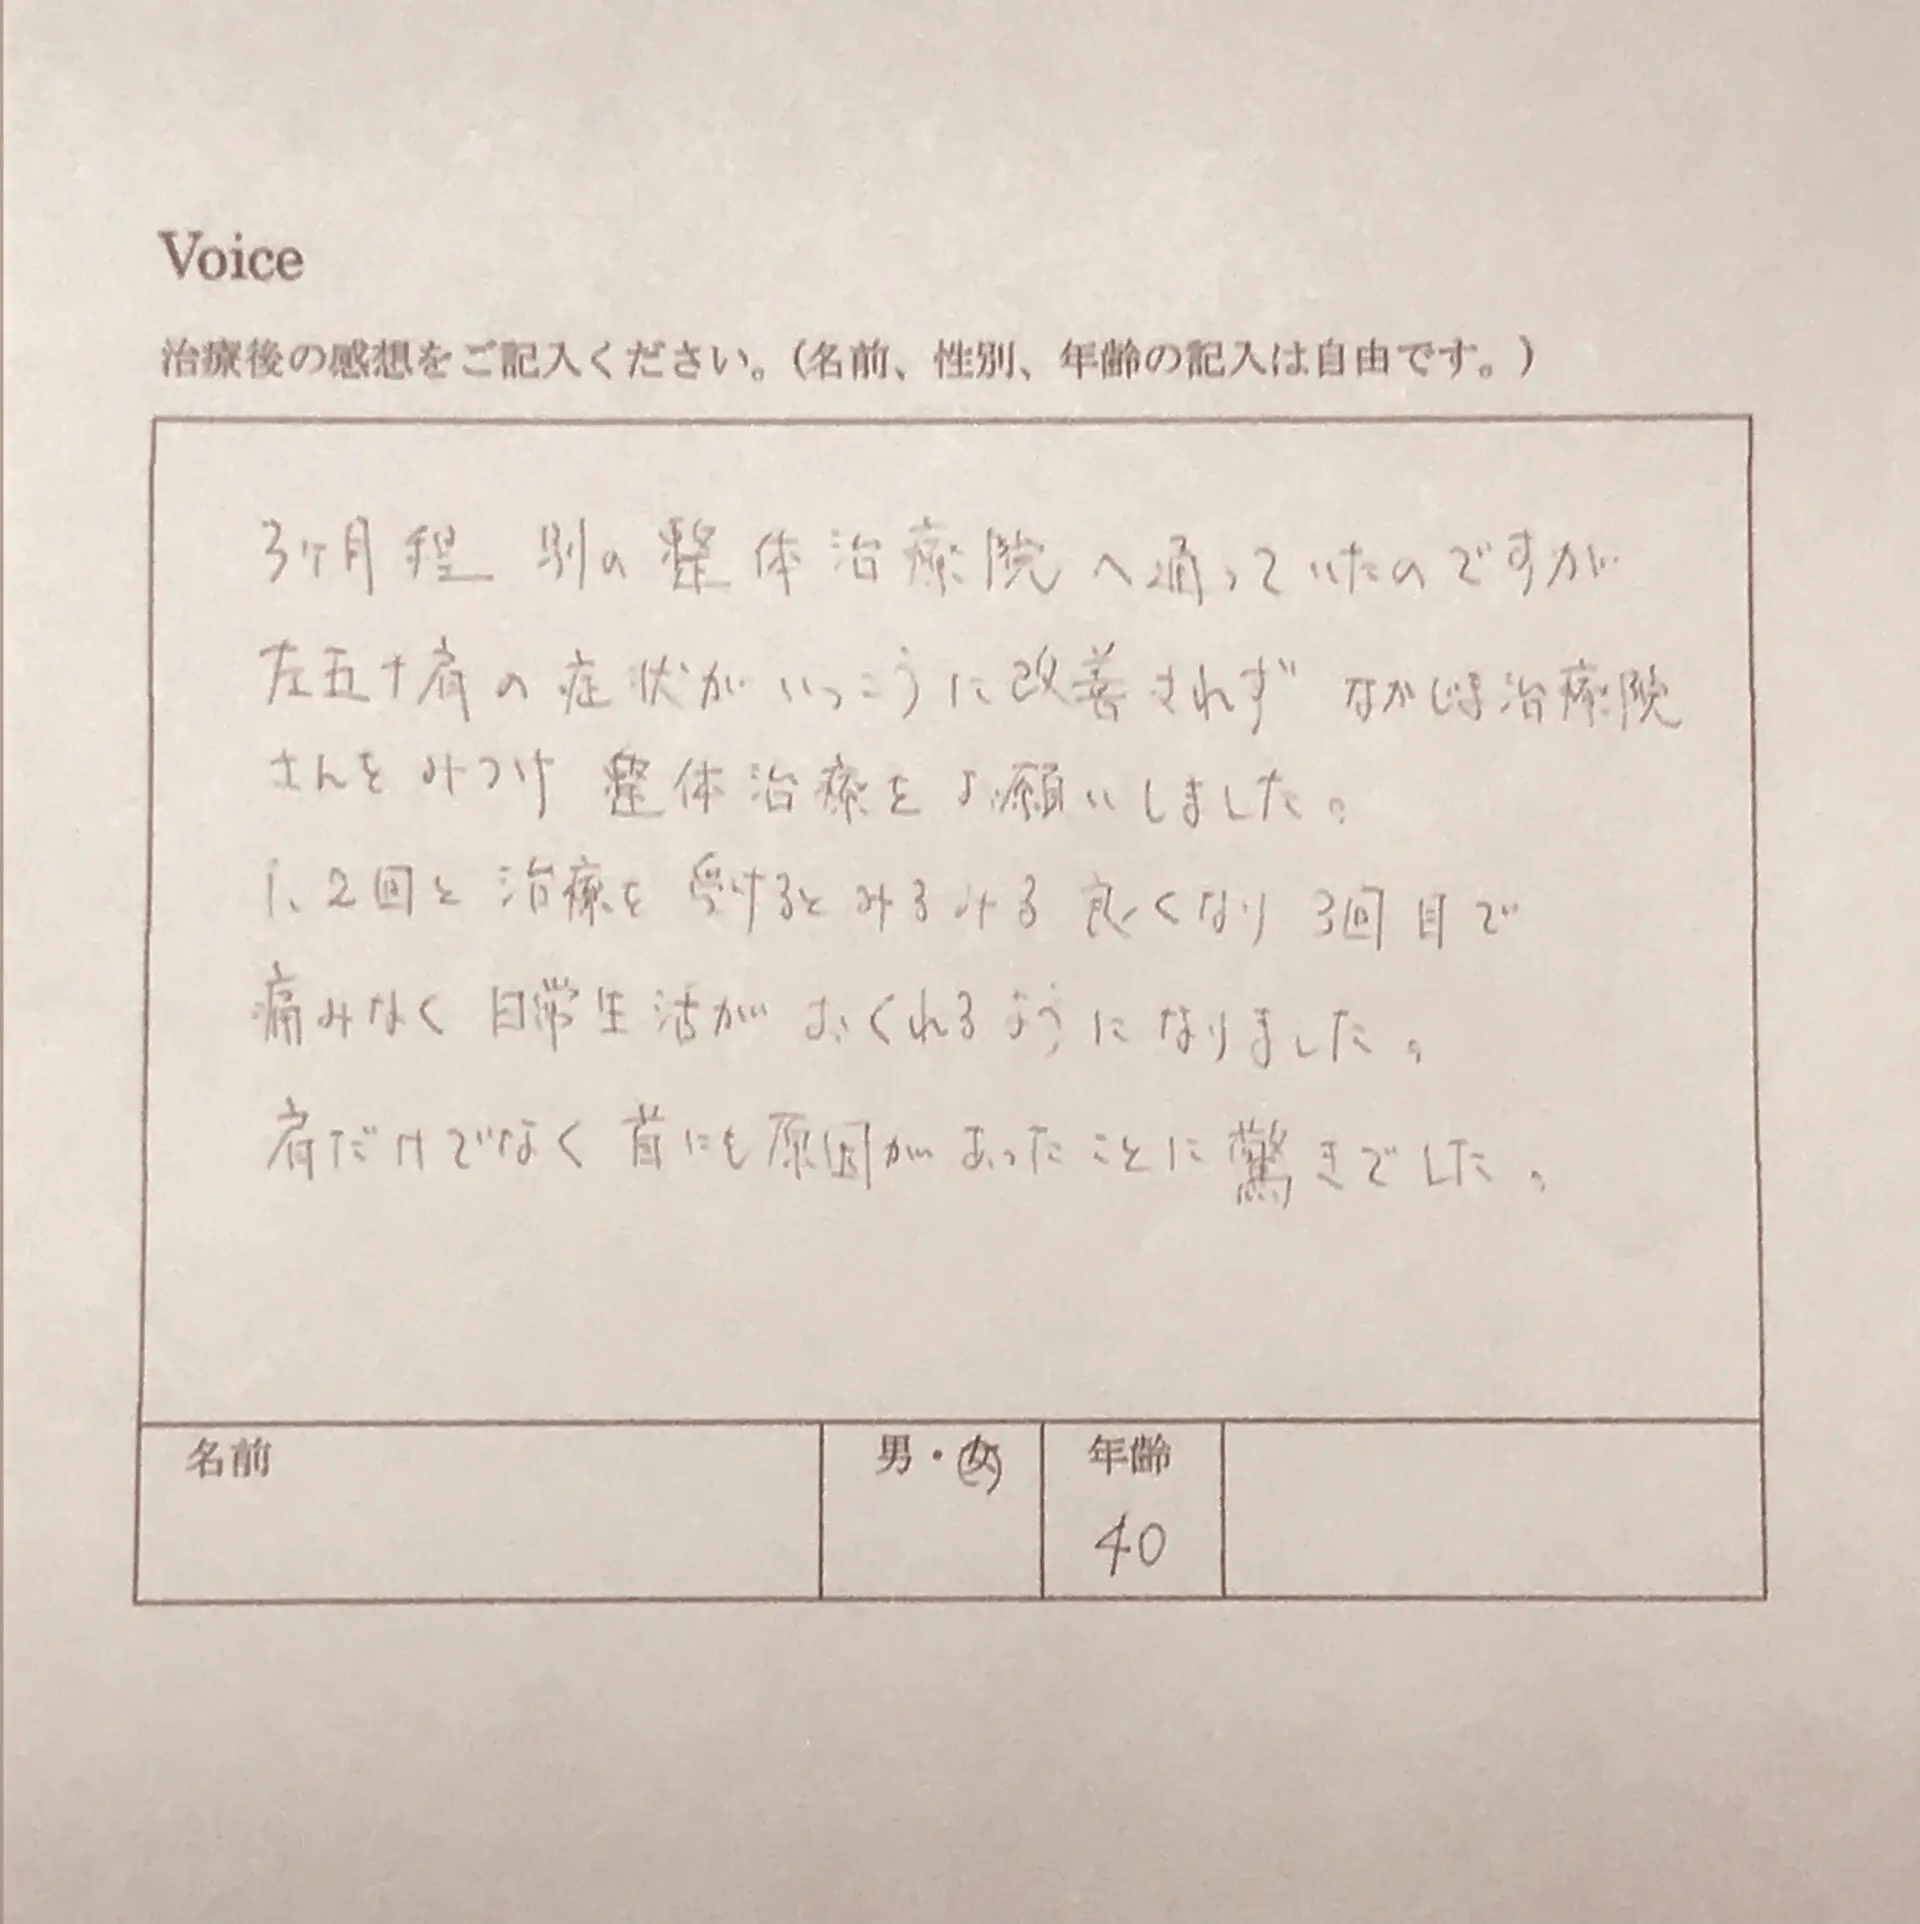 Voice
治療後の感想をご記入ください。(名前、性別、年齢の記入は自由です。)
3ヶ月程 別の整体治療院へ通っていたのですが
左五十肩の症状がいっこうに改善されず なかじま治療院
さんをみつけ 整体治療をお願いしました。
1、2回と治療を受けるとみるみる良くなり3回目で
痛みなく日常生活がおくれるようになりました。
肩だけでなく首にも原因があったことに驚きでした。
名前 男・女 年齢
40